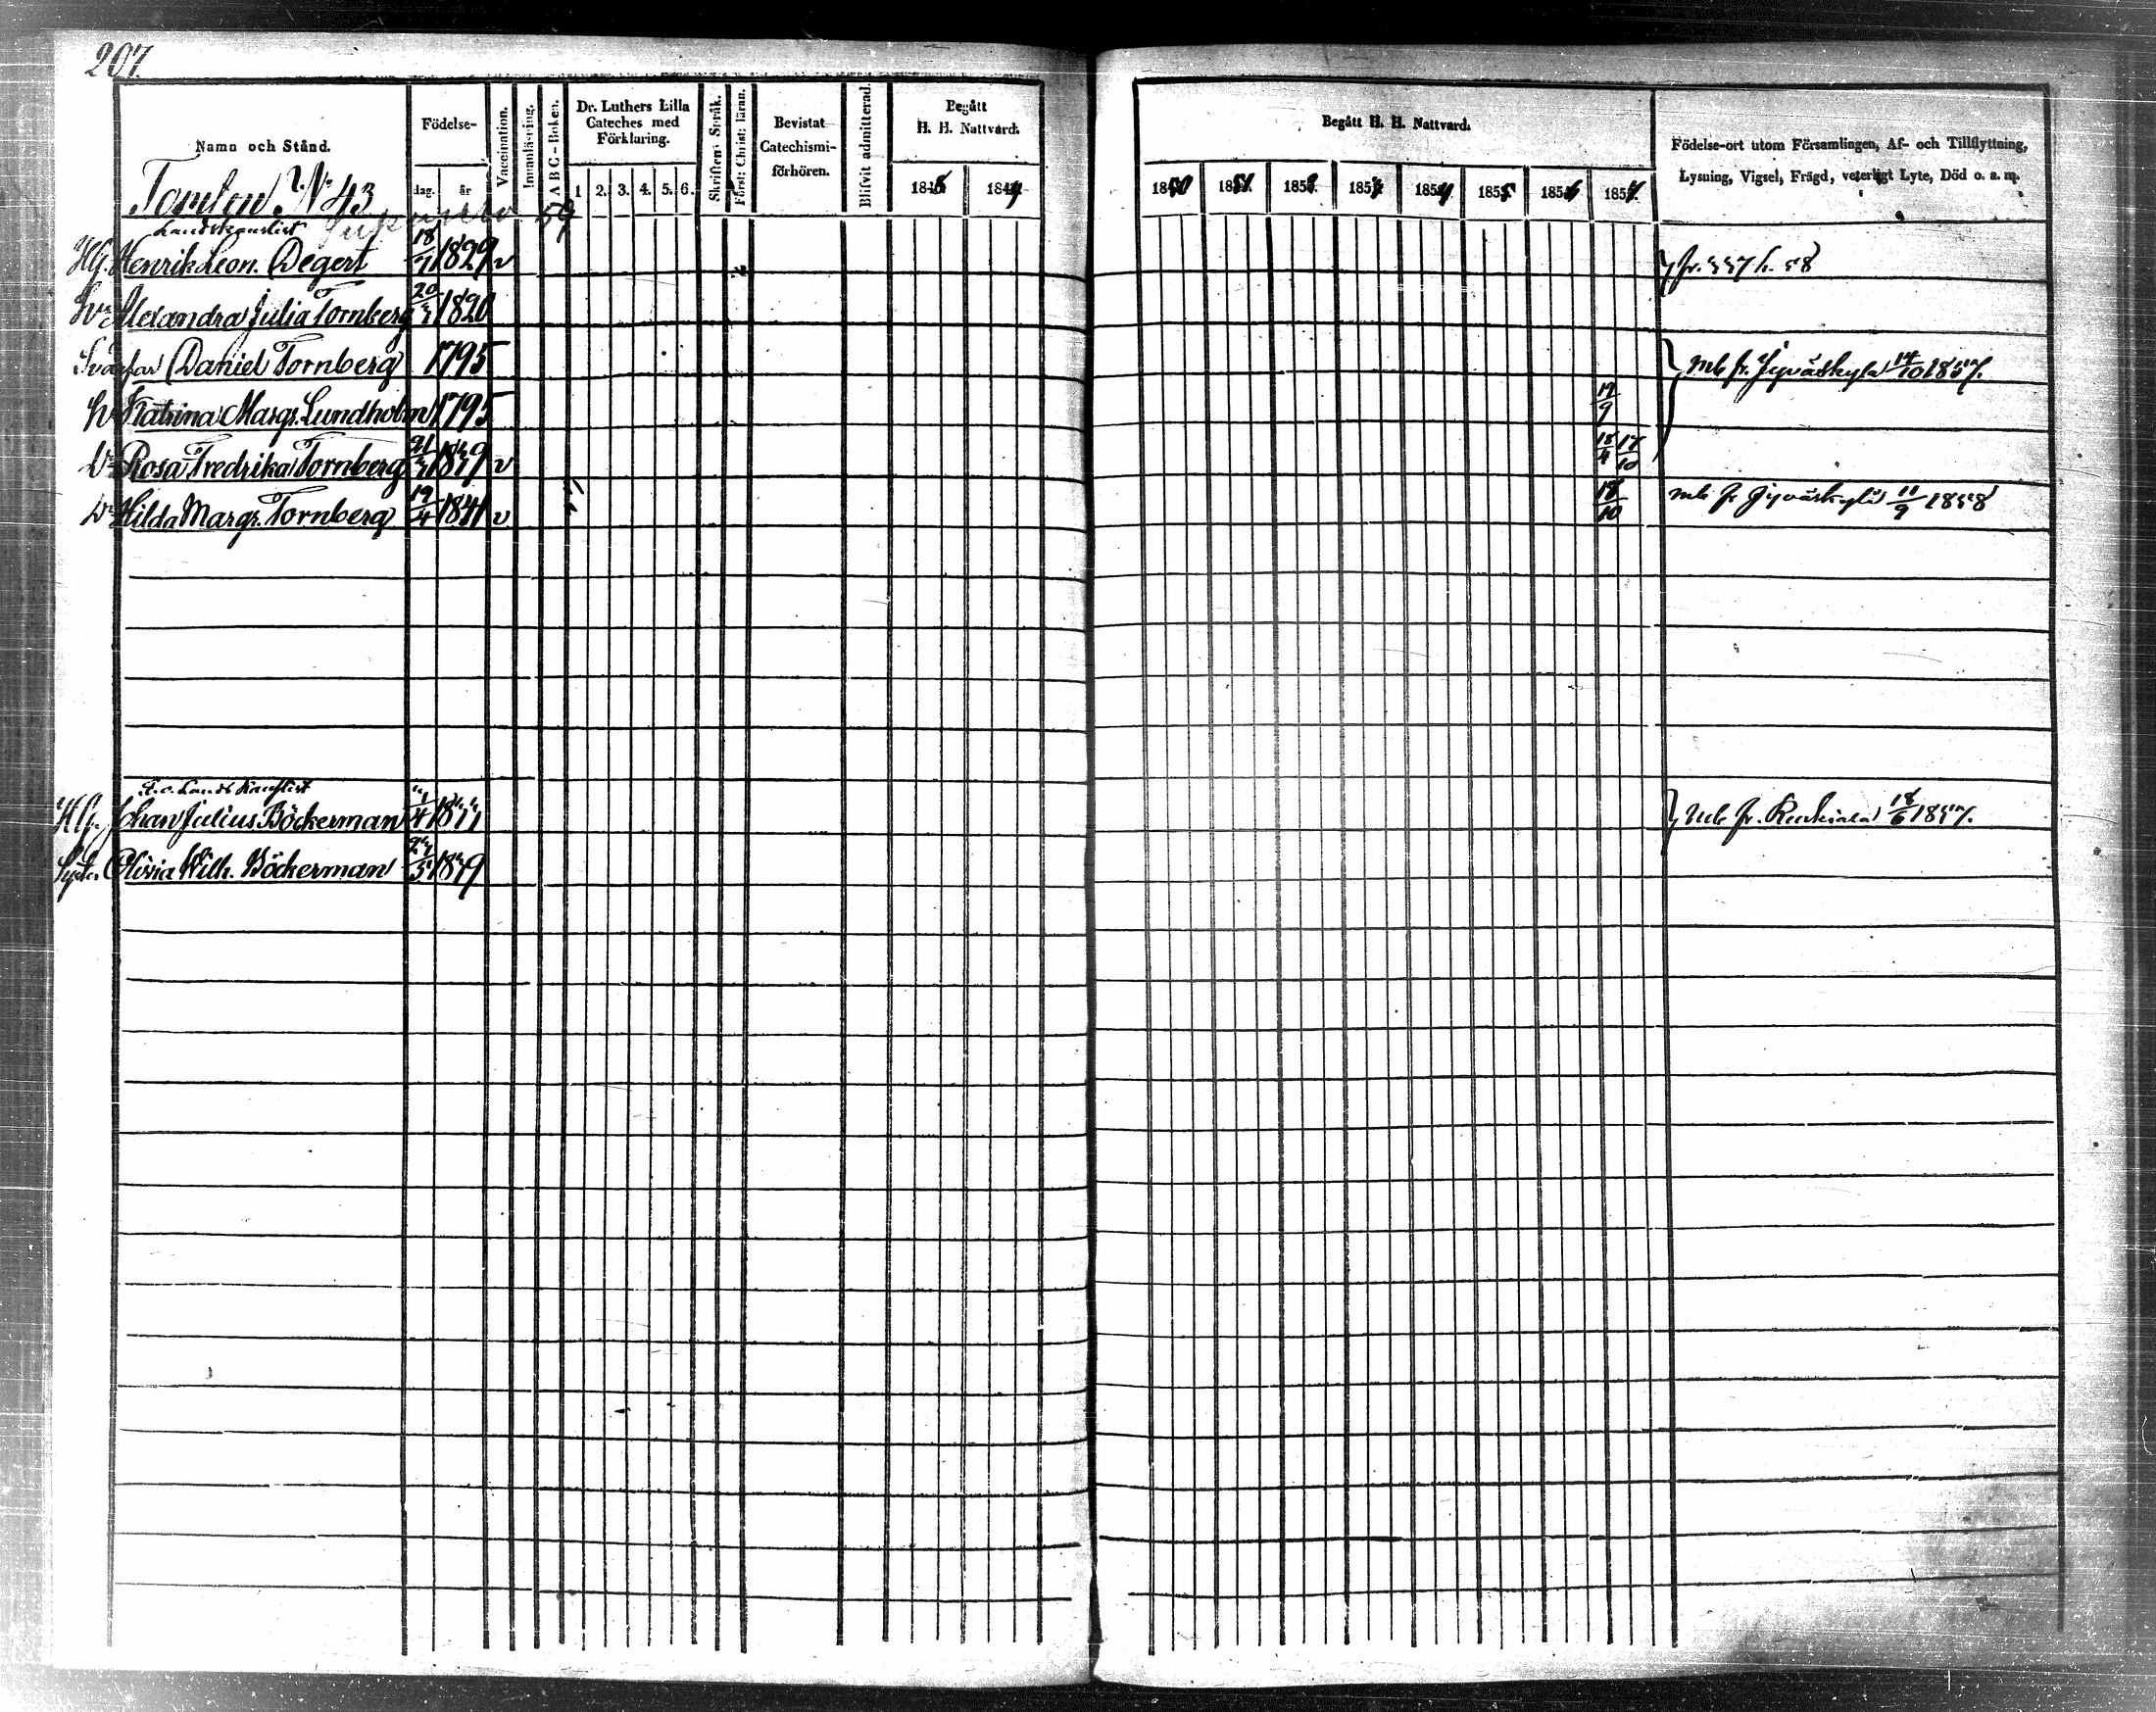 207.
Namn och Stånd.
Födelse-
dag.
år
Vaccination.
Innanläsning.
A B C - Boken.
Dr. Luthers Lilla Cateches med Förklaring.
1 2. 3. 4. 5. 6.
Skriftens Språk.
Först: Christ: läran.
Bevistat Catechismi-förhören.
Blifvit admitterad.
Begått H. H. Nattvard.
1848 1849
Tomten N:o 43
59
Landskanslist
HG. Henrik Leon. Degert 18/7 1829 v
Hu Alexandra Julia Tornberg 1820
Svärfar Daniel Tornberg 1795
Hu Katrina Margr. Lundholm 1795
Dr Rosa Fredrika Tornberg v
Dr Hilda Margr. Tornberg 19/4 1841 v
E.o. Lands Kanslist
HG. Johan Julius Böckerman
Syst. Olivia Wilh. Böckerman
Begått H. H. Nattvard.
1850 1851 1852 1853 1854 1855 1856 1857
Födelse-ort utom Församlingen, Af- och Tillflyttning,
Lysning, Vigsel, Frägd, veterligt Lyte, Död o. a. m.
mb fr. Jyväskylä 14/10 1857.
19/9
18/4 17/10
18/10
mb fr Jyväskylä 11/9 1858
mb fr. Ruskiala 18/6 1857.